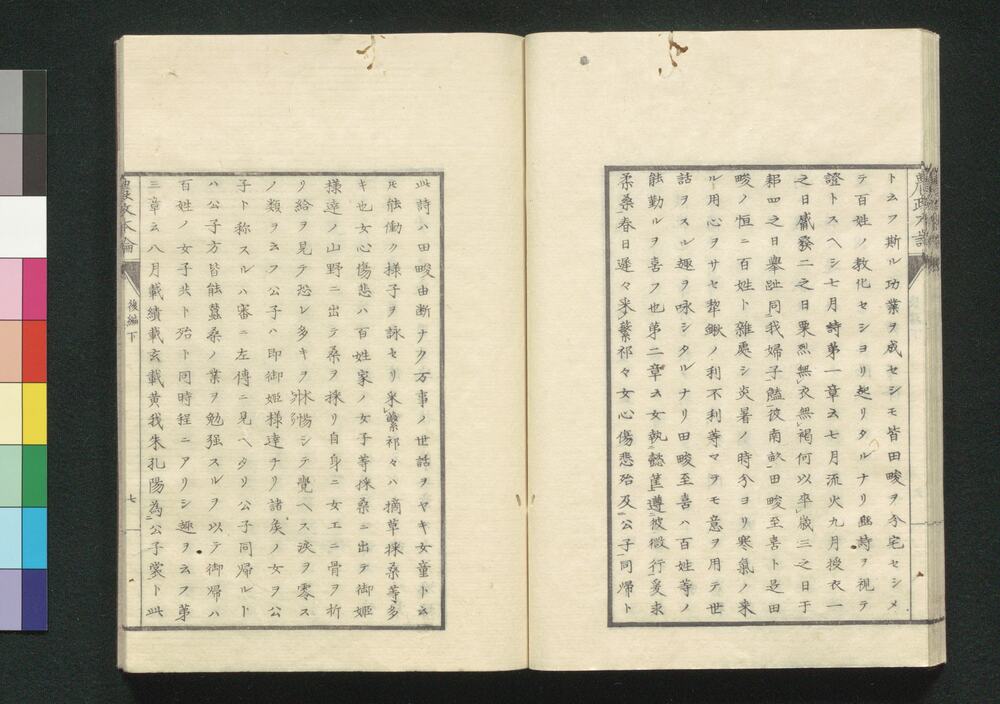 ト云フ斯ル功業ヲ成セシモ皆田畯ヲ分宅セシメ
テ百姓ノ教化セシヨリ起リタルナリ豳詩ヲ視テ
證トスヘシ七月詩第一章云七月流火九月授衣一
之日觱發二之日栗烈無衣無褐何以卒歲三之日于
耜四之日舉趾同我婦子饁彼南畝田畯至喜ト是田
畯ノ恒ニ百姓ト雜處シ炎暑ノ時分ヨリ寒氣ノ来
ル用心ヲサセ犂鍬ノ利不利等マヲモ意ヲ用テ世
話ヲスル趣ヲ咏シタルナリ田畯至喜ハ百姓等ノ
能勤ルヲ喜フ也弟二章云女執懿筐遵彼微行爰求
柔桑春日遲々采蘩祁々女心傷悲殆及公子同帰ト
此詩ハ田畯由断ナク万事ノ世話ヲヤキ女童ト云
𪜈能働ク様子ヲ詠セリ采蘩祁々ハ摘草採桑等多
キ也女心傷悲ハ百姓家ノ女子等採桑ニ出テ御姫
様達ノ山野ニ出テ桑ヲ採リ自身ニ女工ニ骨ヲ折
リ給ヲ見テ恐レ多キヲ怵惕シテ覺ヘス涙ヲ零ス
ノ類ヲ云フ公子ハ即御姫様達ナリ諸矦ノ女ヲ公
子ト称スルハ審ニ左傳ニ見ヘタリ公子同帰ルト
ハ公子方皆能蠶桑ノ業ヲ勉强スルヲ以テ御帰ハ
百姓ノ女子共ト殆ト同時程ニアリシ趣ヲ云フ第
三章云八月載績載玄載黄我朱孔陽為公子裳ト此
農政本論
後編下
七